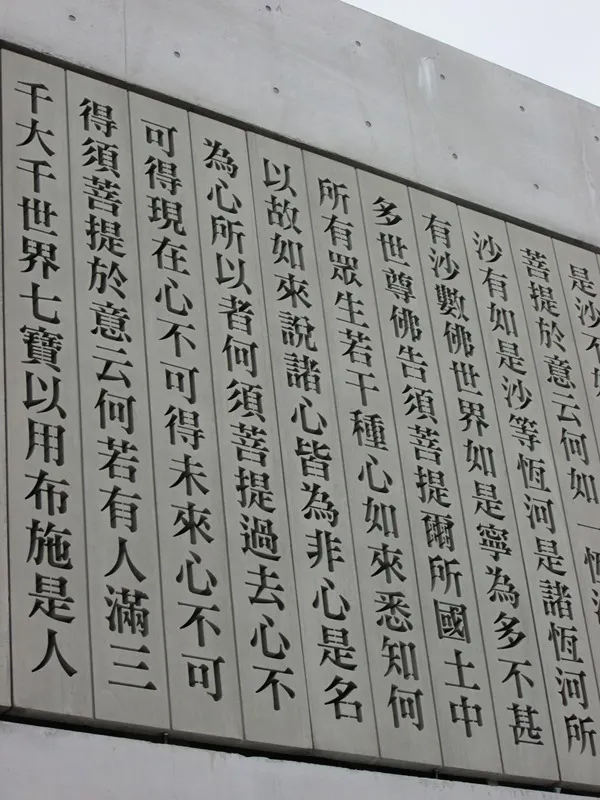 是沙不
菩提於意云何如一恆河
沙有如是沙等恆河是諸恆河所
有沙數佛世界如是寧為多不甚
多世尊佛告須菩提爾所國土中
所有眾生若干種心如來悉知何
以故如來說諸心皆為非心是名
為心所以者何須菩提過去心不
可得現在心不可得未來心不可
得須菩提於意云何若有人滿三
千大千世界七寶以用布施是人